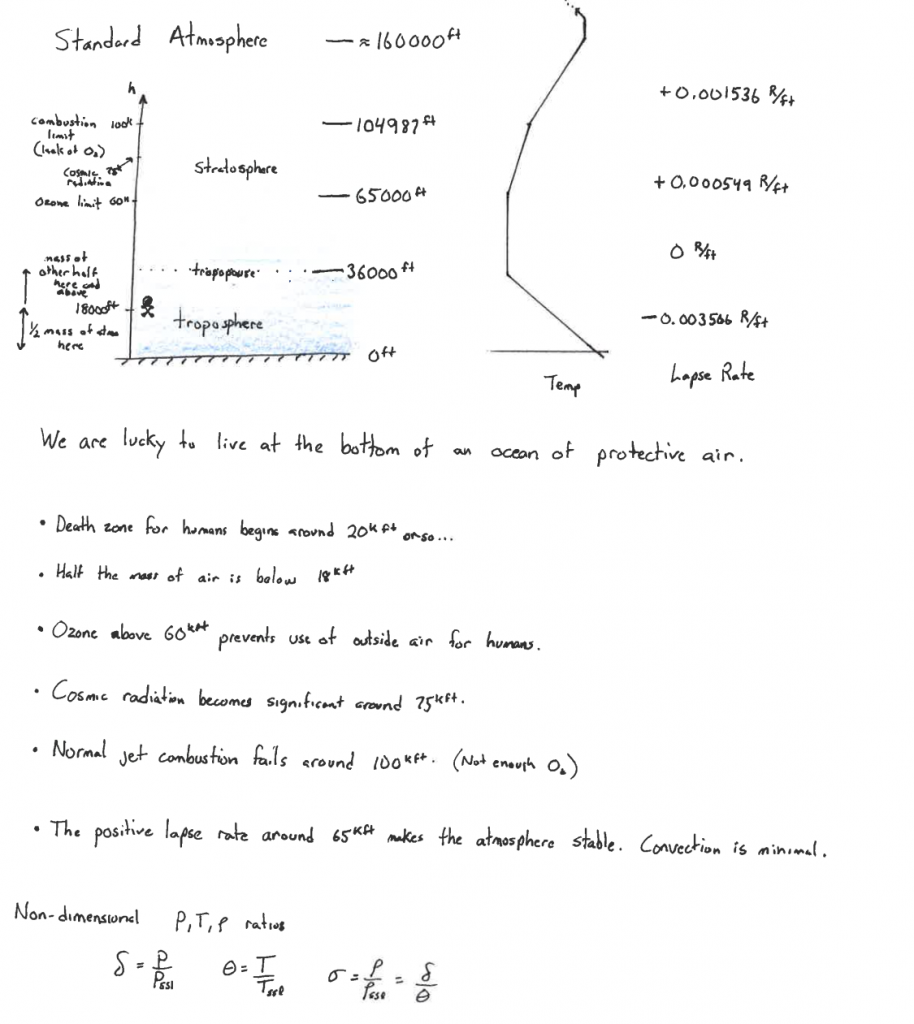 Standard Atmosphere
≈ 160000 ft
h
+0.001536 R/ft
combustion limit 100k
(lack of O₂)
104987 ft
Cosmic radiation 75k
Stratosphere
+0.000549 R/ft
Ozone limit 60k
65000 ft
0 R/ft
mass of
other half
here and
above
tropopause
36000 ft
18000 ft
½ mass of atm
here
troposphere
-0.003566 R/ft
0 ft
Temp
Lapse Rate
We are lucky to live at the bottom of an ocean of protective air.
• Death zone for humans begins around 20k ft or so...
• Half the mass of air is below 18k ft
• Ozone above 60k ft prevents use of outside air for humans.
• Cosmic radiation becomes significant around 75k ft.
• Normal jet combustion fails around 100k ft. (Not enough O₂)
• The positive lapse rate around 65k ft makes the atmosphere stable. Convection is minimal.
Non-dimensional P, T, ρ ratios
δ = P/Pssl θ = T/Tssl σ = ρ/ρssl = δ/θ